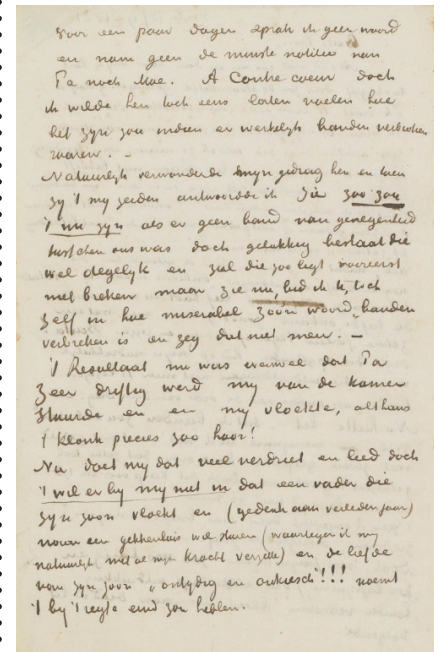 Voor een paar dagen sprak ik geen woord
en nam geen de minste notitie van
Pa noch Moe. A Contre coeur doch
ik wilde hen toch eens laten voelen hoe
het zijn zou indien er werkelijk banden verbroken
waren. –
Natuurlijk verwonderde mijn gedrag hen en toen
zij 't mij zeiden antwoordde ik Zie zoo zou
't nu zijn als er geen band van genegenheid
tusschen ons was doch gelukkig bestaat die
wel degelijk en zal die zoo ligt vooreerst
niet breken maar zie nu, bid ik U, toch
zelf in hoe miserabel zoo'n woord, banden
verbreken is en zeg dat niet meer. –
't Resultaat nu was evenwel dat Pa
zeer driftig werd mij van de kamer
stuurde en en mij vloekte, althans
't klonk precies zoo hoor!
Nu doet mij dat veel verdriet en leed doch
't wil er bij mij niet in dat een vader die
zijn zoon vloekt en (gedenk aan verleden jaar)
naar een gekkenhuis wil sturen (waartegen ik mij
natuurlijk met al mijn kracht verzette) en de liefde
van zijn zoon "ontijdig en onkiesch"!!! noemt
't bij 't regte eind zou hebben.